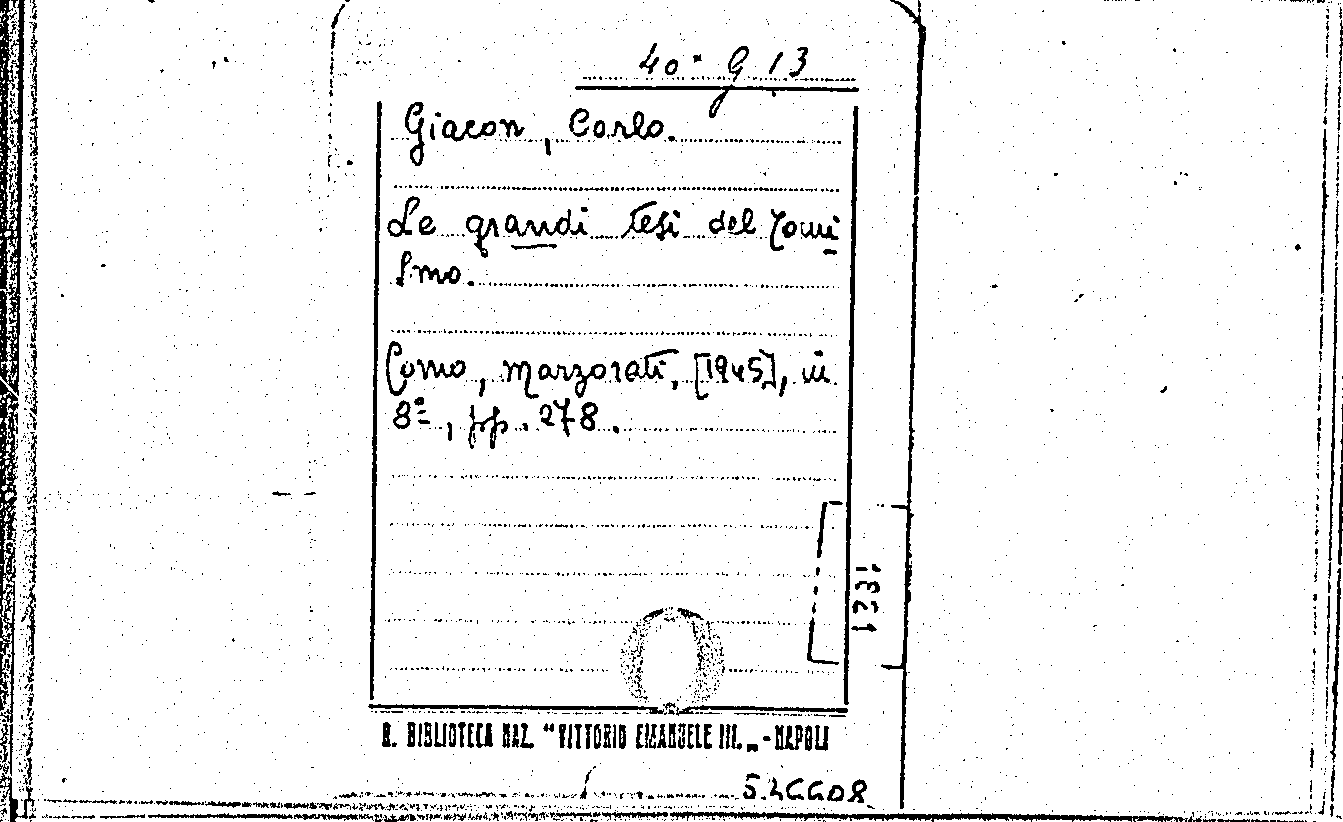 40ª G 13
Giacon, Carlo.
Le grandi tesi del Tomi
smo.
Como, Marzorati, [1945], in
8º, pp. 278.
1821
R. BIBLIOTECA NAZ. "VITTORIO EMANUELE III. „ - NAPOLI